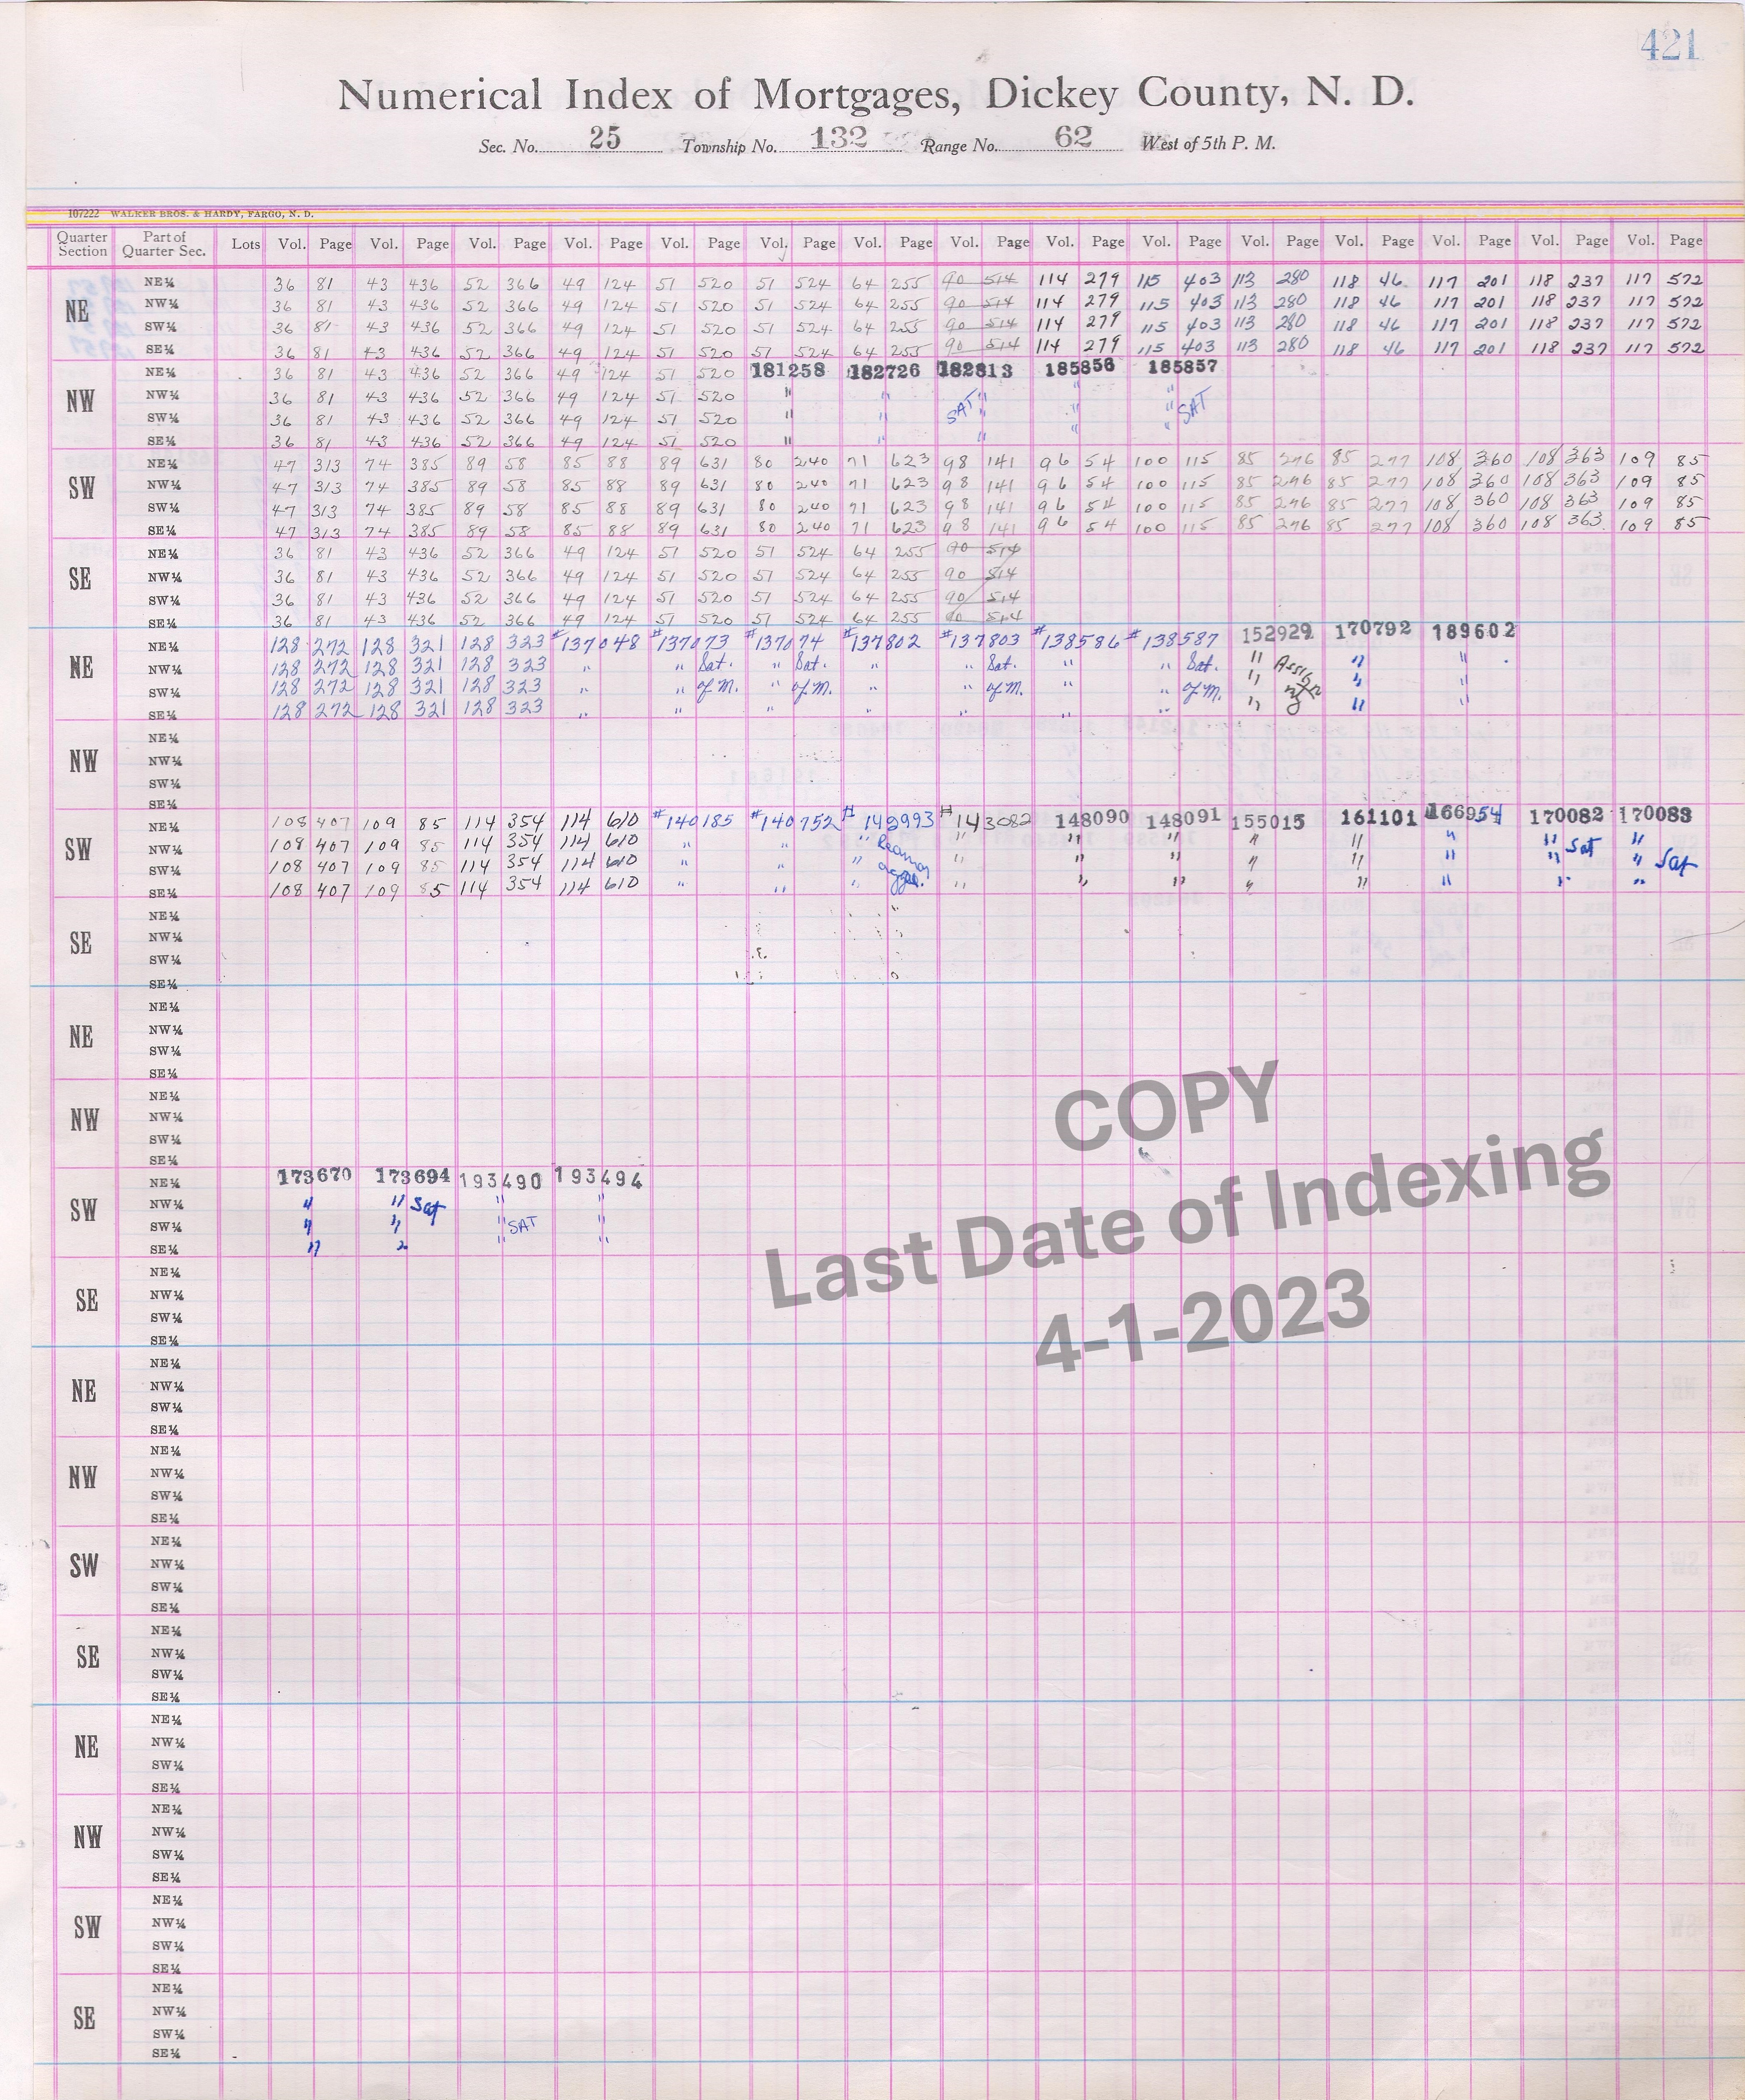 421
Numerical Index of Mortgages, Dickey County, N. D.
Sec. No. 25 Township No. 132 Range No. 62 West of 5th P. M.
107222 WALKER BROS. & HARDY, FARGO, N. D.
Quarter Section Part of Quarter Sec. Lots Vol. Page Vol. Page Vol. Page Vol. Page Vol. Page Vol. Page Vol. Page Vol. Page Vol. Page Vol. Page Vol. Page Vol. Page Vol. Page Vol. Page Vol. Page
NE
NE¼ 36 81 43 436 52 366 49 124 51 520 51 524 64 255 90 514 114 279 115 403 113 280 118 46 117 201 118 237 117 572
NW¼ 36 81 43 436 52 366 49 124 51 520 51 524 64 255 90 514 114 279 115 403 113 280 118 46 117 201 118 237 117 572
SW¼ 36 81 43 436 52 366 49 124 51 520 51 524 64 255 90 514 114 279 115 403 113 280 118 46 117 201 118 237 117 572
SE¼ 36 81 43 436 52 366 49 124 51 520 51 524 64 255 90 514 114 279 115 403 113 280 118 46 117 201 118 237 117 572
NW
NE¼ 36 81 43 436 52 366 49 124 51 520 181258 182726 182813 185856 185857
NW¼ 36 81 43 436 52 366 49 124 51 520 " " " " "
SW¼ 36 81 43 436 52 366 49 124 51 520 " " SAT " " " SAT
SE¼ 36 81 43 436 52 366 49 124 51 520 " " " " "
SW
NE¼ 47 313 74 385 89 58 85 88 89 631 80 240 71 623 98 141 96 54 100 115 85 276 85 277 108 360 108 363 109 85
NW¼ 47 313 74 385 89 58 85 88 89 631 80 240 71 623 98 141 96 54 100 115 85 276 85 277 108 360 108 363 109 85
SW¼ 47 313 74 385 89 58 85 88 89 631 80 240 71 623 98 141 96 54 100 115 85 276 85 277 108 360 108 363 109 85
SE¼ 47 313 74 385 89 58 85 88 89 631 80 240 71 623 98 141 96 54 100 115 85 276 85 277 108 360 108 363 109 85
SE
NE¼ 36 81 43 436 52 366 49 124 51 520 51 524 64 255 90 514
NW¼ 36 81 43 436 52 366 49 124 51 520 51 524 64 255 90 514
SW¼ 36 81 43 436 52 366 49 124 51 520 51 524 64 255 90 514
SE¼ 36 81 43 436 52 366 49 124 51 520 51 524 64 255 90 514
NE
NE¼ 128 272 128 321 128 323 #137048 #137073 #137074 #137802 #137803 #138586 #138587 152929 170792 189602
NW¼ 128 272 128 321 128 323 " " Sat. " Sat. " " Sat. " " Sat. " Assign " "
SW¼ 128 272 128 321 128 323 " " of M. " of M. " " of M. " " of M. " of " "
SE¼ 128 272 128 321 128 323 " " " " " " " " " "
NW
NE¼
NW¼
SW¼
SE¼
SW
NE¼ 108 407 109 85 114 354 114 610 #140185 #140752 #142993 #143082 148090 148091 155015 161101 166954 170082 170083
NW¼ 108 407 109 85 114 354 114 610 " " " " " " " " " " Sat "
SW¼ 108 407 109 85 114 354 114 610 " " " " " " " " " " " Sat
SE¼ 108 407 109 85 114 354 114 610 " " " " " " " " " " "
SE
NE¼
NW¼
SW¼
SE¼
NE
NE¼
NW¼
SW¼
SE¼
NW
NE¼
NW¼
SW¼
SE¼
SW
NE¼ 173670 173694 193490 193494
NW¼ " " Sat " "
SW¼ " " " SAT "
SE¼ " " " "
SE
NE¼
NW¼
SW¼
SE¼
NE
NE¼
NW¼
SW¼
SE¼
NW
NE¼
NW¼
SW¼
SE¼
SW
NE¼
NW¼
SW¼
SE¼
SE
NE¼
NW¼
SW¼
SE¼
NE
NE¼
NW¼
SW¼
SE¼
NW
NE¼
NW¼
SW¼
SE¼
SW
NE¼
NW¼
SW¼
SE¼
SE
NE¼
NW¼
SW¼
SE¼
COPY
Last Date of Indexing
4-1-2023